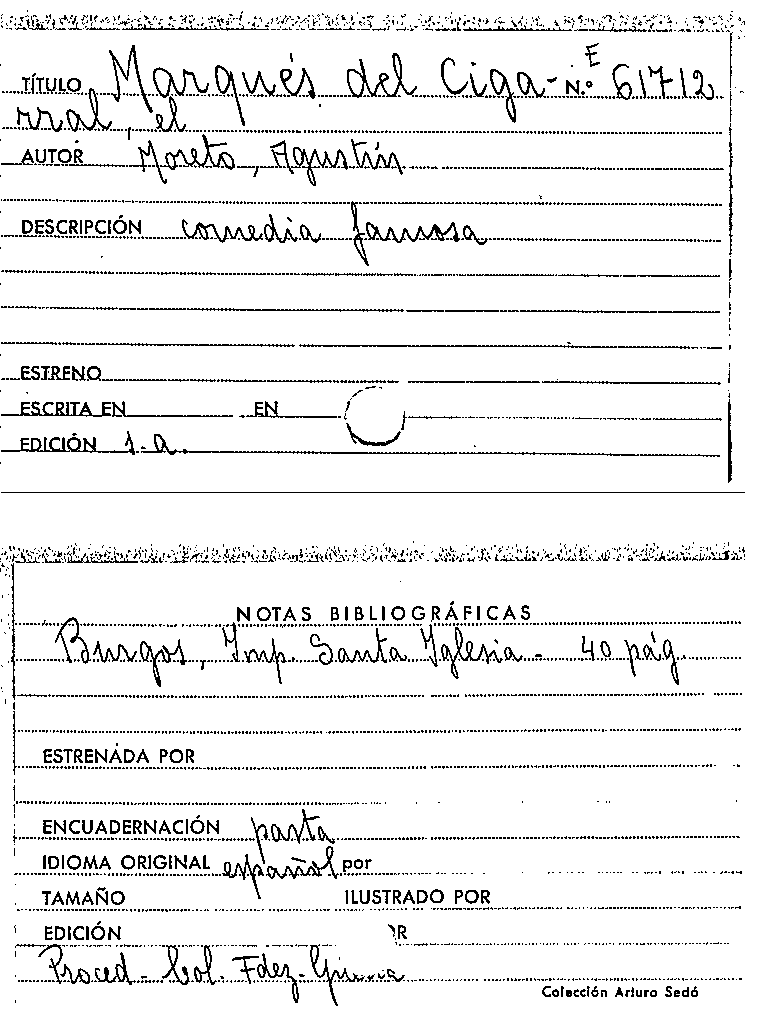 TÍTULO Marqués del Ciga- N.º E 61712
rral, el
AUTOR Moreto, Agustín
DESCRIPCIÓN comedia famosa
ESTRENO
ESCRITA EN EN
EDICIÓN 1-a.
NOTAS BIBLIOGRÁFICAS
Burgos, Imp. Santa Iglesia - 40 pág.
ESTRENADA POR
ENCUADERNACIÓN pasta
IDIOMA ORIGINAL español por
TAMAÑO ILUSTRADO POR
EDICIÓN R
Proced - Col. Fdez-
Colección Arturo Sedó